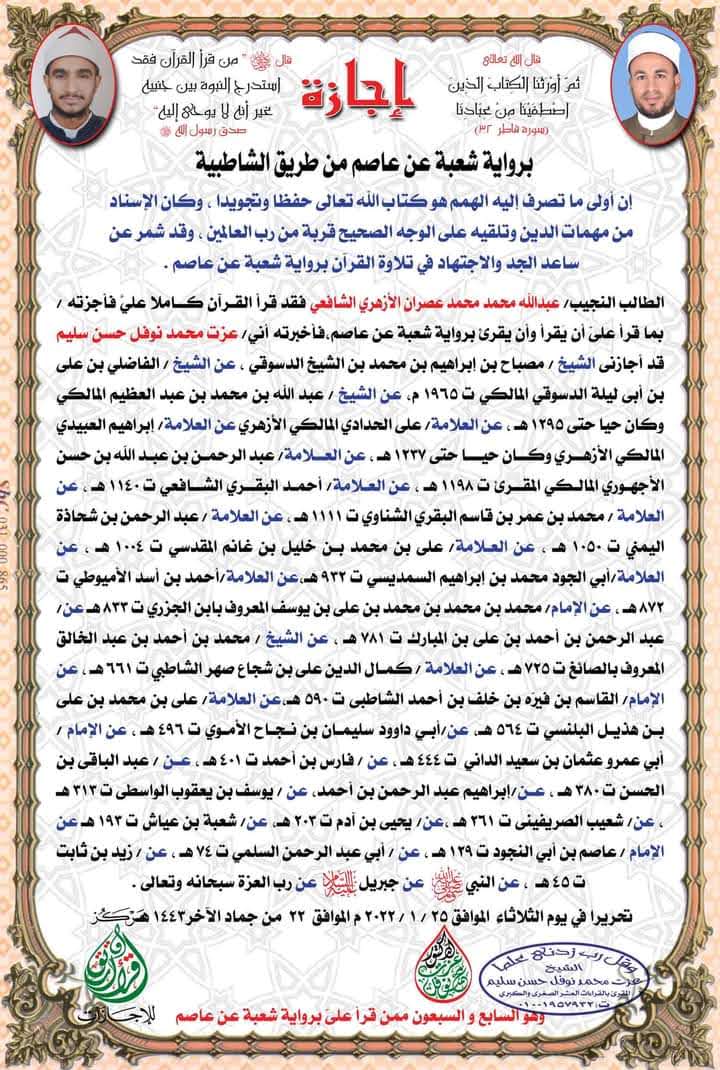 قال الله تعالى
ثُمَّ أَوْرَثْنَا الْكِتَابَ الَّذِينَ
اصْطَفَيْنَا مِنْ عِبَادِنَا
(سورة فاطر ٣٢)
إجازة
قال ﷺ " من قرأ القرآن فقد
استدرج النبوة بين جنبيه
غير أنه لا يوحى إليه"
صدق رسول الله ﷺ
برواية شعبة عن عاصم من طريق الشاطبية
إن أولى ما تصرف إليه الهمم هو كتاب الله تعالى حفظا وتجويدا ، وكان الإسناد
من مهمات الدين وتلقيه على الوجه الصحيح قربة من رب العالمين ، وقد شمر عن
ساعد الجد والاجتهاد في تلاوة القرآن برواية شعبة عن عاصم .
الطالب النجيب/ عبدالله محمد محمد عصران الأزهري الشافعي فقد قرأ القرآن كاملا عليّ فأجزته /
بما قرأ علىّ أن يقرأ وأن يقرئ برواية شعبة عن عاصم،فأخبرته أني/ عزت محمد نوفل حسن سليم
قد أجازنى الشيخ / مصباح بن إبراهيم بن محمد بن الشيخ الدسوقي ، عن الشيخ / الفاضلي بن على
بن أبى ليلة الدسوقي المالكي ت ١٩٦٥ م، عن الشيخ / عبد الله بن محمد بن عبد العظيم المالكي
وكان حيا حتى ١٢٩٥ هـ ، عن العلامة/ على الحدادي المالكي الأزهري عن العلامة/ إبراهيم العبيدي
المالكي الأزهري وكان حيا حتى ١٢٣٧ هـ ، عن العلامة/ عبد الرحمن بن عبد الله بن حسن
الأجهوري المالكي المقرئ ت ١١٩٨ هـ ، عن العلامة/ أحمد البقري الشافعي ت ١١٤٠ هـ ، عن
العلامة / محمد بن عمر بن قاسم البقري الشناوي ت ١١١١ هـ ، عن العلامة / عبد الرحمن بن شحاذة
اليمني ت ١٠٥٠ هـ ، عن العلامة/ على بن محمد بن خليل بن غانم المقدسي ت ١٠٠٤ هـ ، عن
العلامة/أبي الجود محمد بن إبراهيم السمديسي ت ٩٣٢ هـ،عن العلامة/أحمد بن أسد الأميوطي ت
٨٧٢ هـ ، عن الإمام/ محمد بن محمد بن محمد بن على بن يوسف المعروف بابن الجزري ت ٨٣٣ هـ عن/
عبد الرحمن بن أحمد بن على بن المبارك ت ٧٨١ هـ ، عن الشيخ / محمد بن أحمد بن عبد الخالق
المعروف بالصائغ ت ٧٢٥ هـ ، عن العلامة / كمال الدين على بن شجاع صهر الشاطبي ت ٦٦١ هـ ، عن
الإمام/ القاسم بن فيرة بن خلف بن أحمد الشاطبى ت ٥٩٠ هـ،عن العلامة/ على بن محمد بن على
بن هذيل البلنسي ت ٥٦٤ هـ، عن/أبي داوود سليمان بن نجاح الأموي ت ٤٩٦ هـ ، عن الإمام /
أبي عمرو عثمان بن سعيد الداني ت ٤٤٤ هـ ، عن / فارس بن أحمد ت ٤٠١ هـ ، عن / عبد الباقى بن
الحسن ت ٣٨٠ هـ ، عن/إبراهيم عبد الرحمن بن أحمد، عن / يوسف بن يعقوب الواسطى ت ٣١٣ هـ
، عن/ شعيب الصريفينى ت ٢٦١ هـ ،عن/ يحيى بن آدم ت ٢٠٣ هـ،عن/ شعبة بن عياش ت ١٩٣ هـ عن
الإمام / عاصم بن أبي النجود ت ١٢٩ هـ ، عن / أبي عبد الرحمن السلمي ت ٧٤ هـ ، عن / زيد بن ثابت
ت ٤٥ هـ ، عن النبي ﷺ عن جبريل عليه السلام عن رب العزة سبحانه وتعالى .
تحريرا في يوم الثلاثاء الموافق ٢٥ / ١ / ٢٠٢٢ م الموافق ٢٢ من جماد الآخر ١٤٤٣ هـ
مركز
اقرأ وارتق
للإجازات
وقل رب زدنى علما
الشيخ
عزت محمد نوفل حسن سليم
المقرئ بالقراءات العشر الصغرى والكبرى
ت: ٠١٠٠١٩٥٧٩٣٢
وهو السابع و السبعون ممن قرأ علىّ برواية شعبة عن عاصم